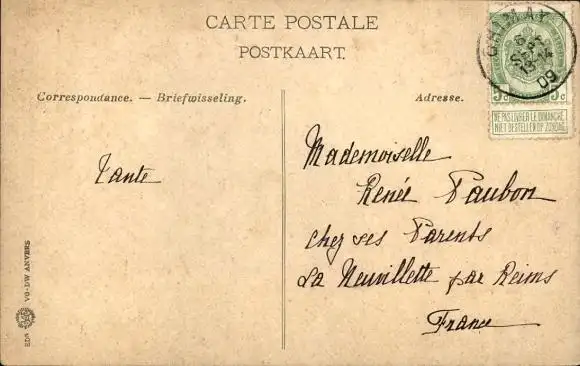 CARTE POSTALE
POSTKAART.
CHIMAY
09
5c 5c
NE PAS LIVRER LE DIMANCHE
NIET BESTELLEN OP ZONDAG
Correspondance. — Briefwisseling.
Adresse.
Tante
Mademoiselle
Renée Paubon
chez ses Parents
La Neuvillette par Reims
France
VO-DW ANVERS